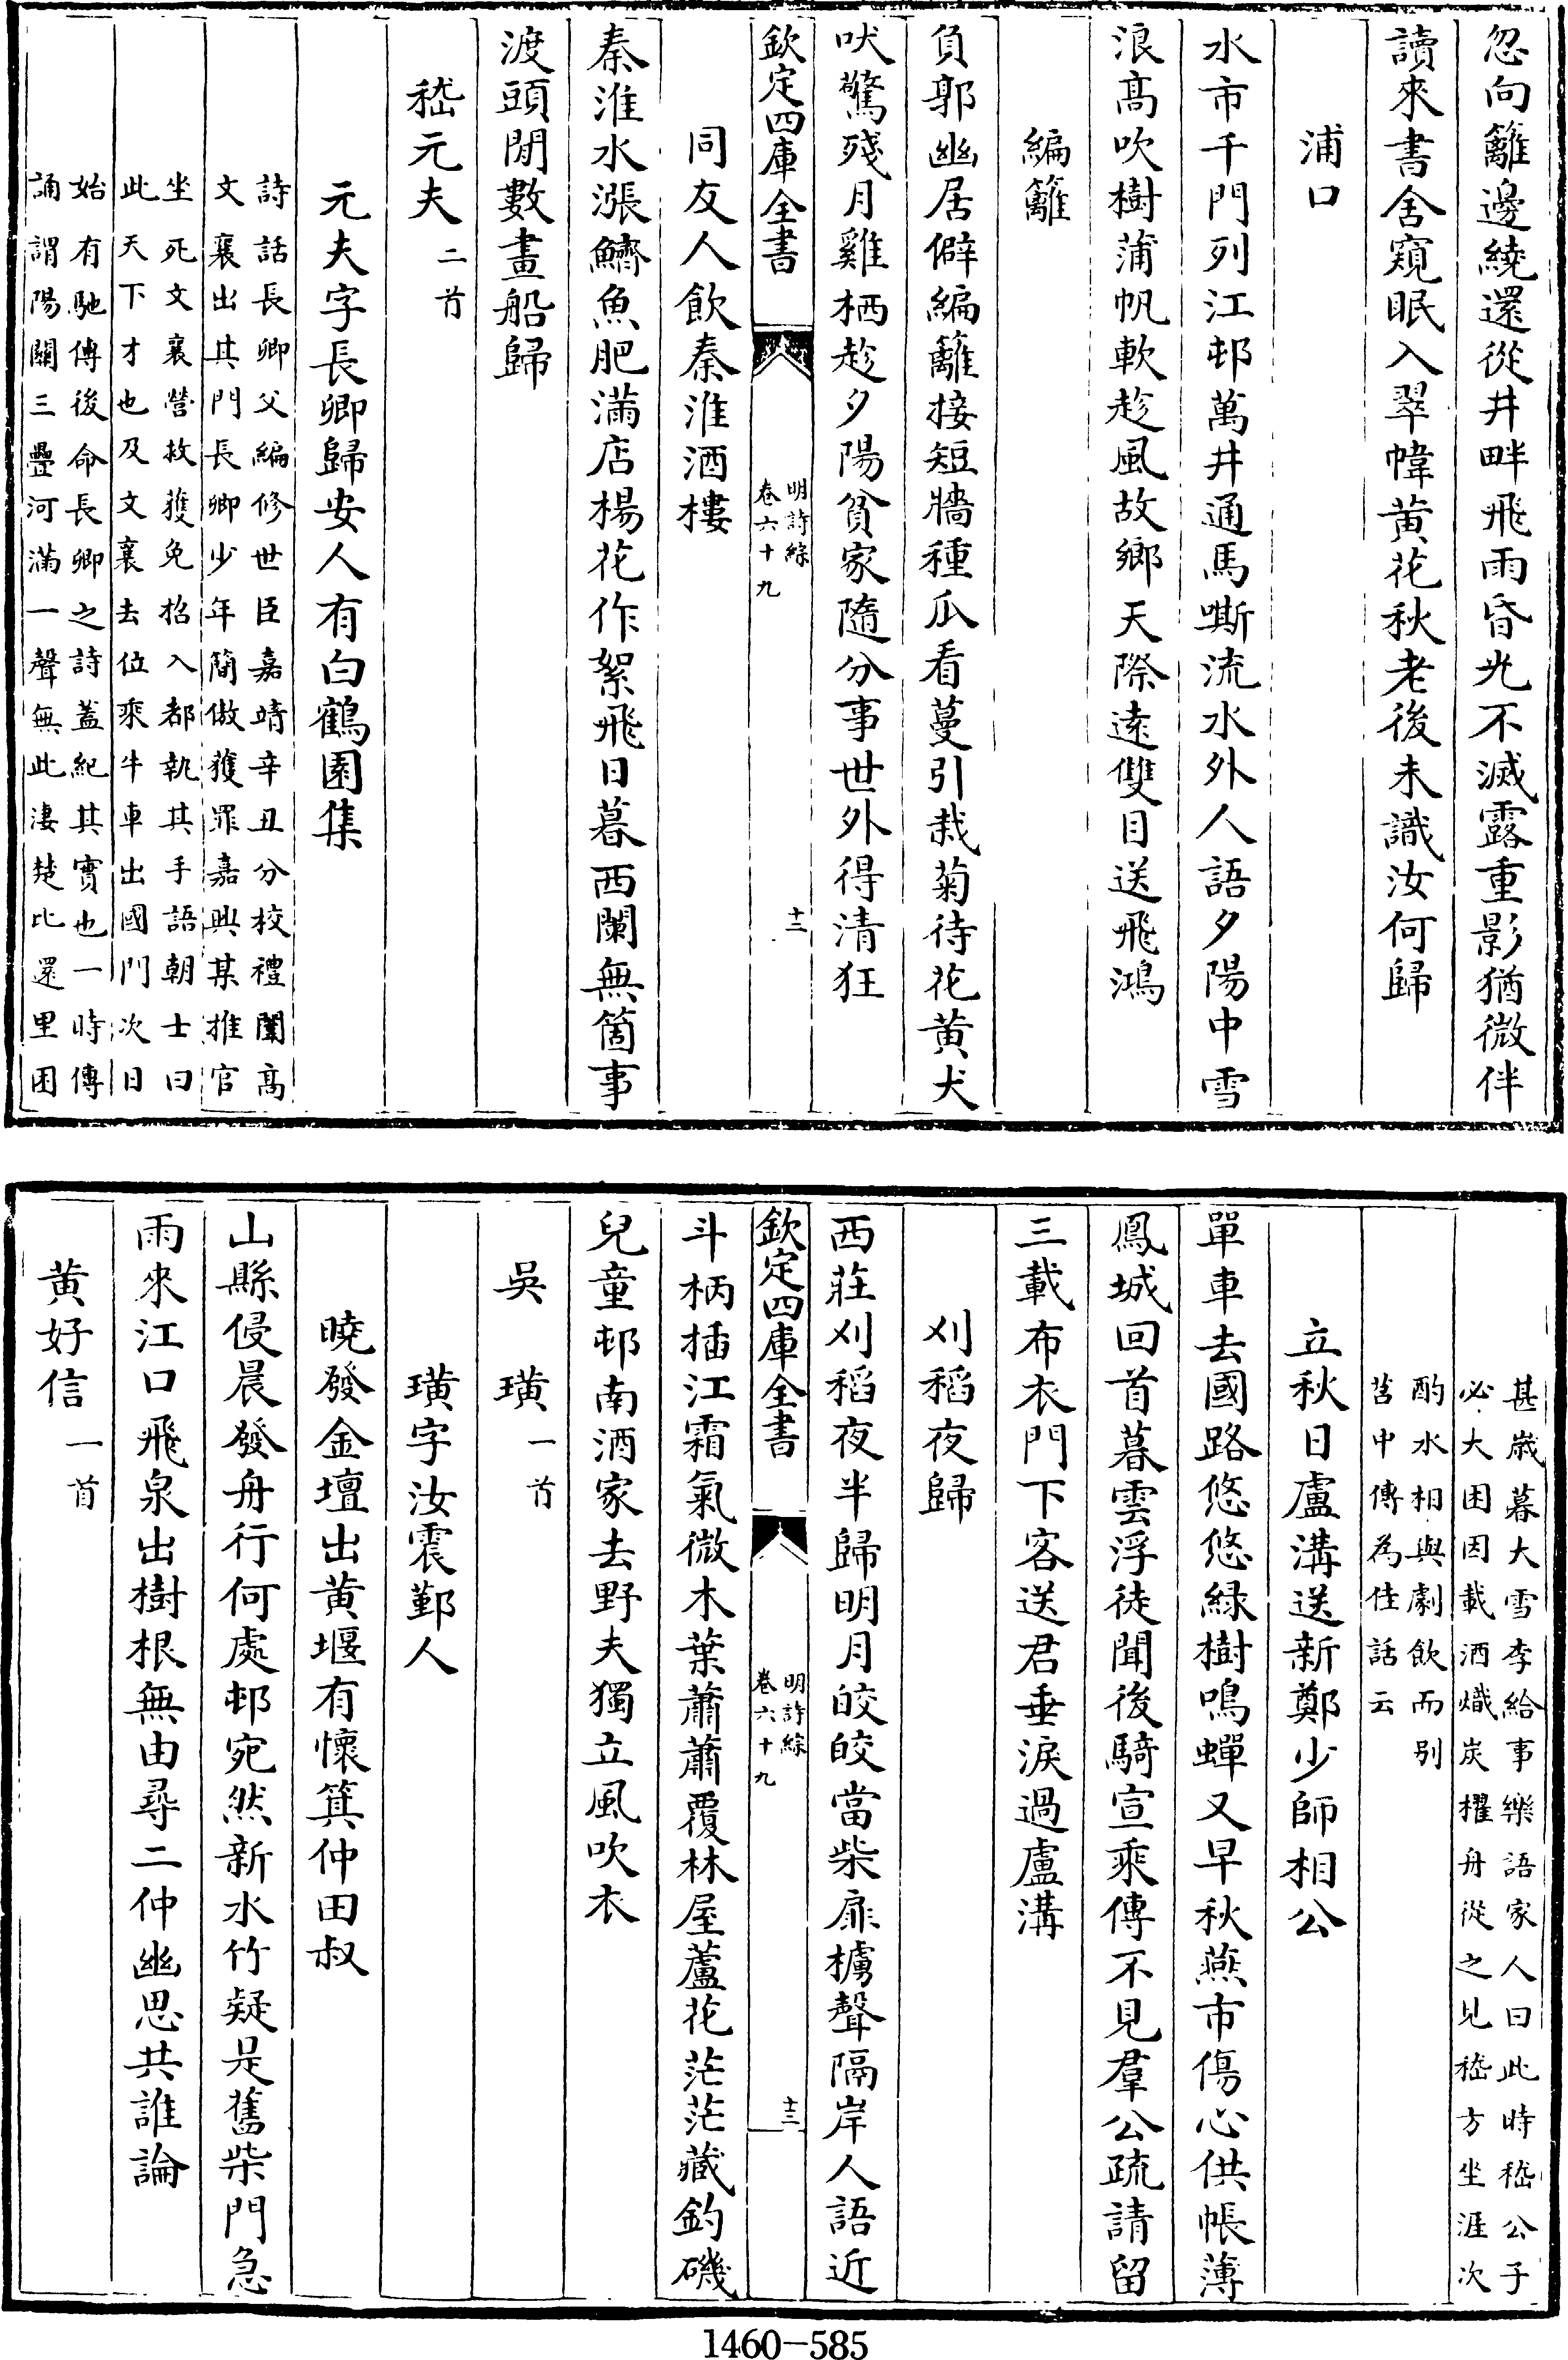 忽向籬邊繞還從井畔飛雨昏光不滅露重影猶微伴
讀來書舍窺眠入翠幃黄花秋老後未識汝何歸
浦口
水市千門列江邨萬井通馬嘶流水外人語夕陽中雪
浪高吹樹蒲帆軟趁風故鄉天際遠雙目送飛鴻
編籬
負郭幽居僻編籬接短牆種瓜看蔓引栽菊待花黄犬
吠驚殘月雞栖趁夕陽貧家隨分事世外得清狂
欽定四庫全書
明詩綜
卷六十九
十三
同友人飲秦淮酒樓
秦淮水漲鱭魚肥滿店楊花作絮飛日暮西闌無箇事
渡頭閒數畫船歸
嵇元夫二首
元夫字長卿歸安人有白鶴園集
詩話長卿父編修世臣嘉靖辛丑分校禮闈高
文襄出其門長卿少年簡傲獲罪嘉興某推官
坐死文襄營救獲免招入都執其手語朝士曰
此天下才也及文襄去位乘牛車出國門次日
始有馳傳後命長卿之詩蓋紀其實也一時傳
誦謂陽關三疊河滿一聲無此淒楚比還里困
甚歲暮大雪李給事樂語家人曰此時嵇公子
必大困因載酒熾炭櫂舟從之見嵇方坐涯次
酌水相與劇飲而别
苕中傳為佳話云
立秋日盧溝送新鄭少師相公
單車去國路悠悠緑樹鳴蟬又早秋燕市傷心供帳薄
鳳城回首暮雲浮徒聞後騎宣乘傳不見羣公疏請留
三載布衣門下客送君垂淚過盧溝
刈稻夜歸
西莊刈稻夜半歸明月皎皎當柴扉櫓聲隔岸人語近
欽定四庫全書
明詩綜
卷六十九
十三
斗柄插江霜氣微木葉蕭蕭覆林屋蘆花茫茫藏釣磯
兒童邨南酒家去野夫獨立風吹衣
吳璜一首
璜字汝震鄞人
曉發金壇出黄堰有懷箕仲田叔
山縣侵晨發舟行何處邨宛然新水竹疑是舊柴門急
雨來江口飛泉出樹根無由尋二仲幽思共誰論
黄好信一首
1460-585